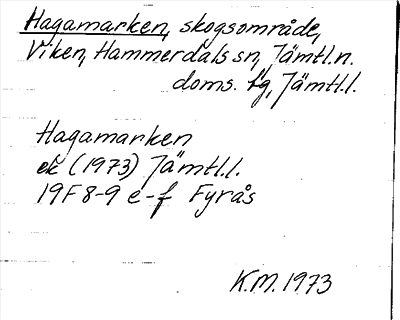 Hagamarken, skogsområde,
Viken, Hammerdals sn, Jämtl.n.
doms. fg, Jämtl.l.
Hagamarken
ek (1973) Jämtl.l.
19F 8-9 e-f Fyrås
K.M. 1973